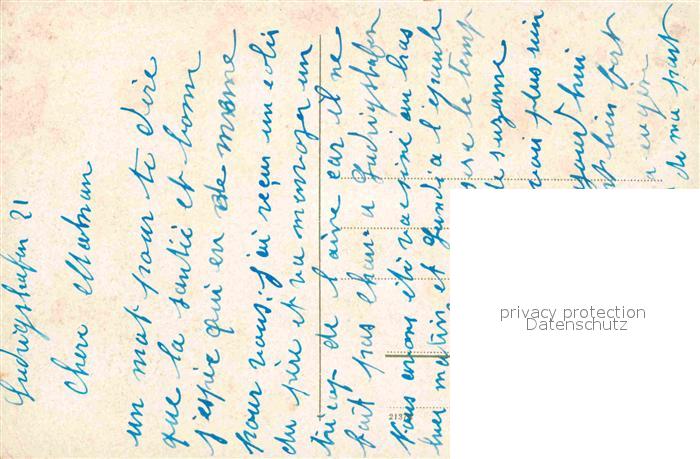 Ludwigshafen 21
Chere Maman
un mot pour te dire
que la santé et bonne
j'espere qui en de meme
pour vous. j'ai reçu un colis
du père et va m'envoyer un
tricot de laine car il ne
fait pas chau a Ludwigshafen
Nous avons été vacciné au bas
hier matin et jeudi a l'epaule
le temp
de suzanne
vous plus rien
jourd'hui
bien fort
de ma part
213
privacy protection
Datenschutz